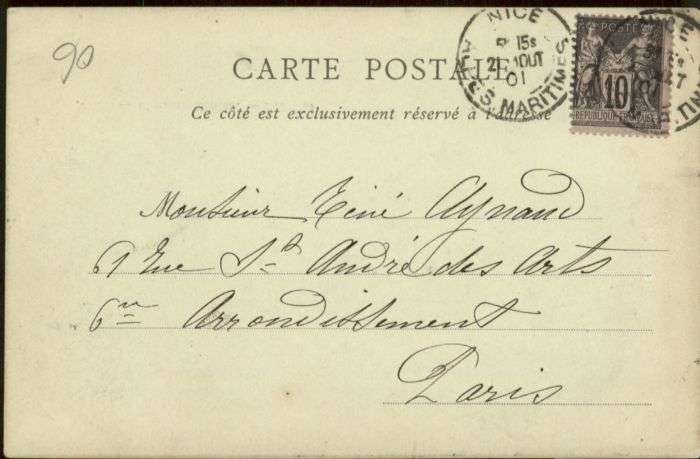 90
NICE
15S
21 AOUT
01
ALPES MARITIMES
POSTES
10
REPUBLIQUE FRANÇAISE
CARTE POSTALE
Ce côté est exclusivement réservé à l'adresse
Monsieur Réné Aynaud
61 Rue St André des Arts
6me Arrondissement
Paris